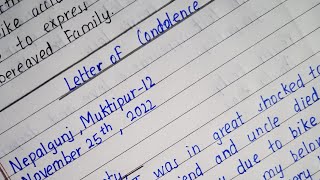 ike acti
e to express
bereaved Family.
Letter of Condolence
Nepalgunj, Muktipur-12
November 25th, 2022
I was in great shocked to
iend and uncle died
due to bike
my belov